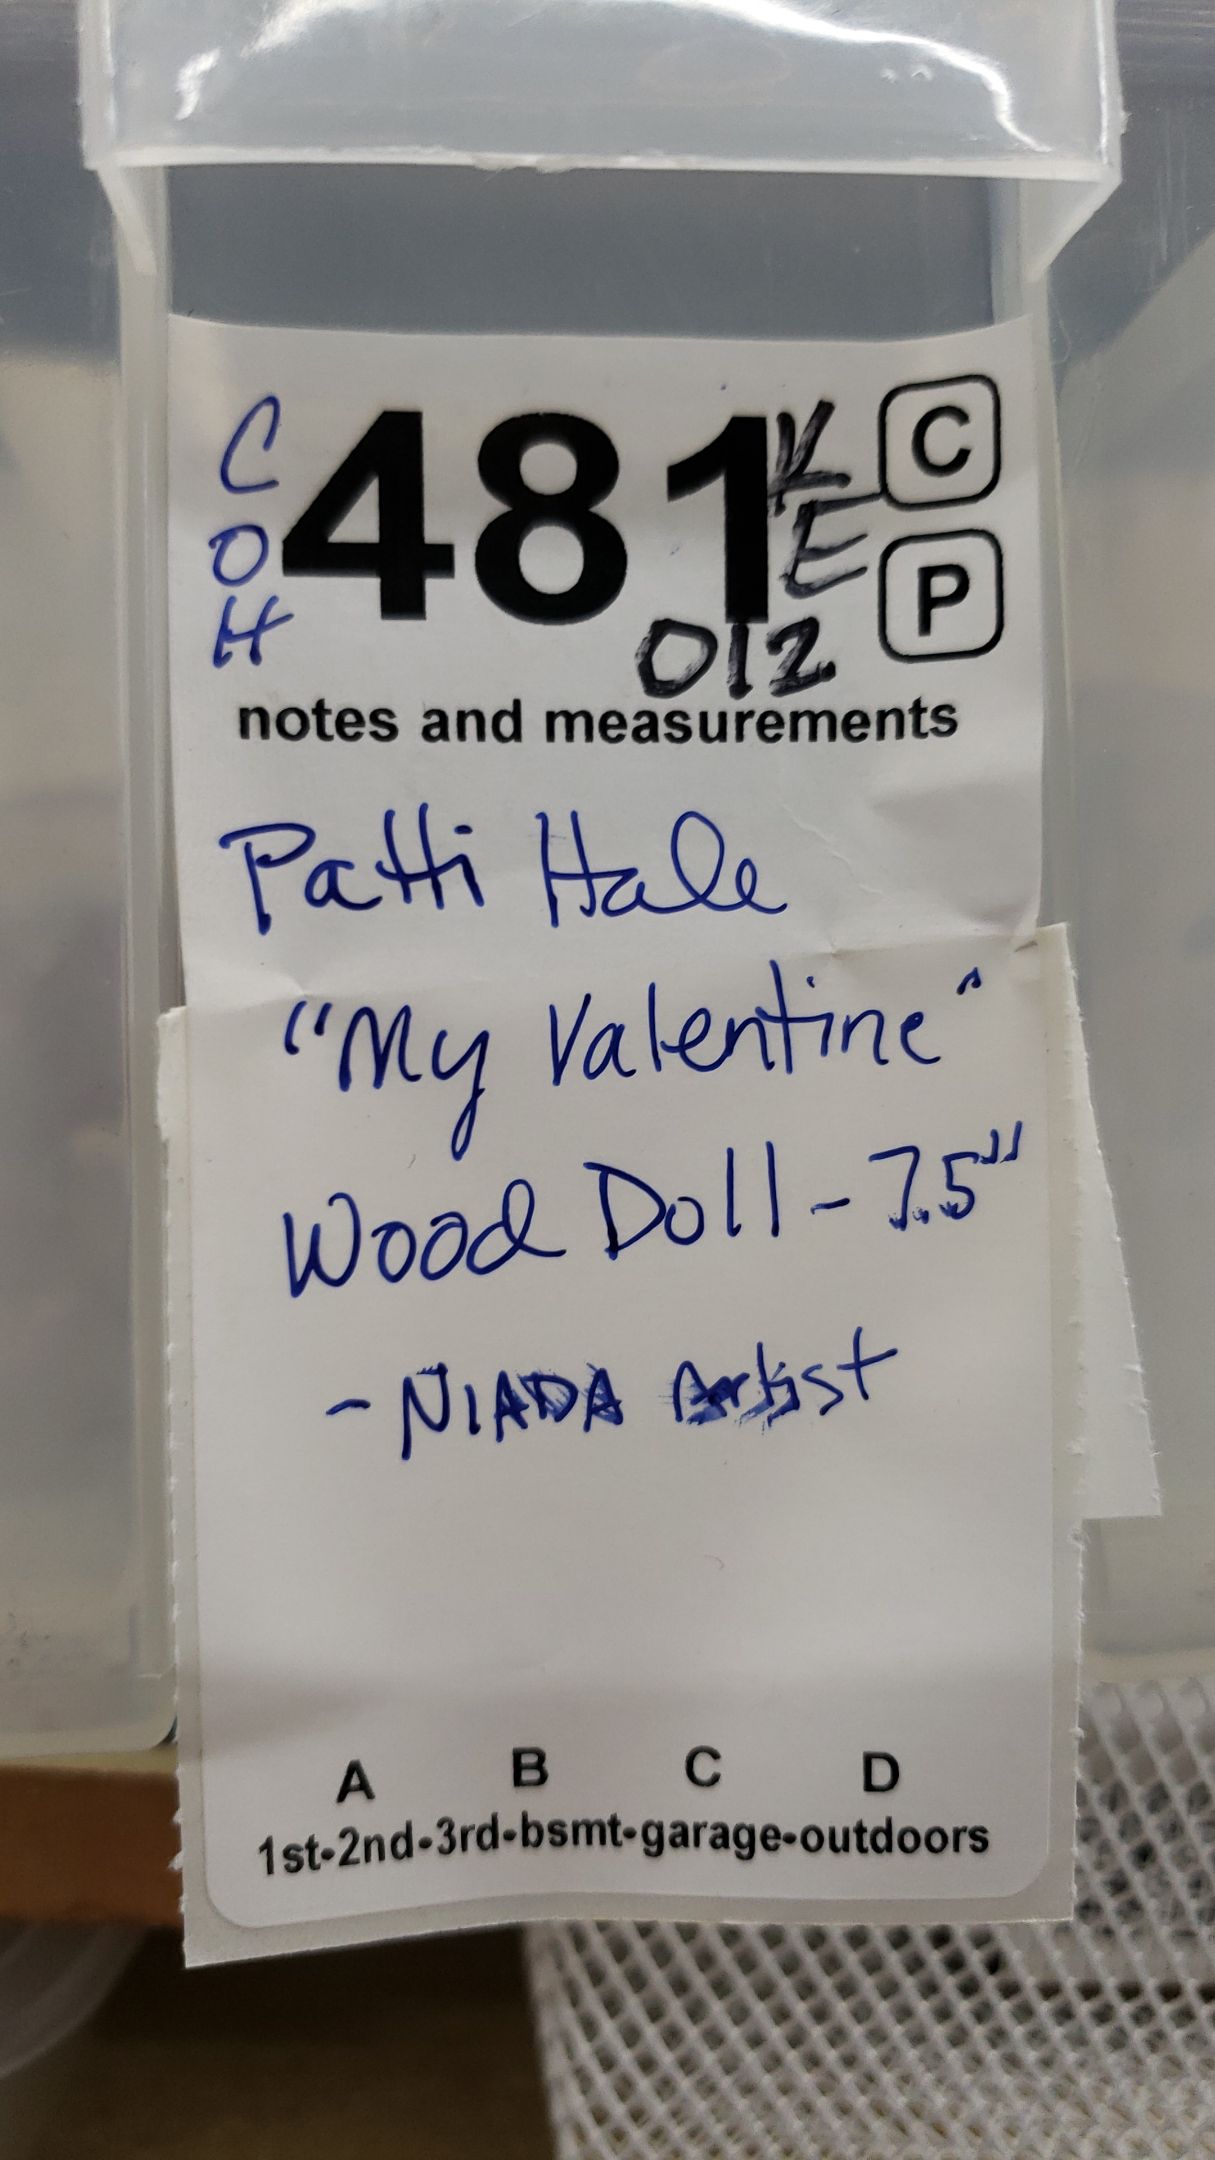 C
O
H
481
K
E
C
P
012
notes and measurements
Patti Hale
"My Valentine"
Wood Doll - 7.5"
- NIADA Artist
A B C D
1st•2nd•3rd•bsmt•garage•outdoors